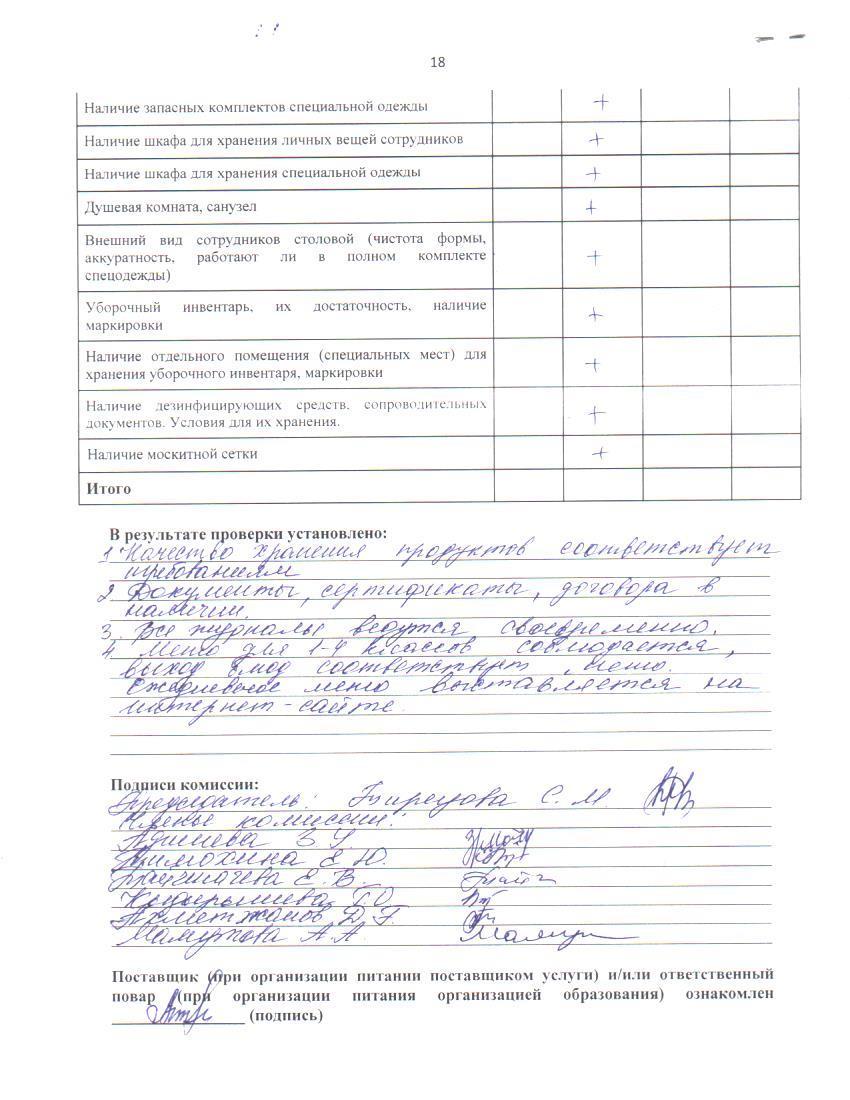 18
Наличие запасных комплектов специальной одежды +
Наличие шкафа для хранения личных вещей сотрудников +
Наличие шкафа для хранения специальной одежды +
Душевая комната, санузел +
Внешний вид сотрудников столовой (чистота формы,
аккуратность, работают ли в полном комплекте +
спецодежды)
Уборочный инвентарь, их достаточность, наличие +
маркировки
Наличие отдельного помещения (специальных мест) для +
хранения уборочного инвентаря, маркировки
Наличие дезинфицирующих средств, сопроводительных +
документов. Условия для их хранения.
Наличие москитной сетки +
Итого
В результате проверки установлено:
1. Качество хранения продуктов соответствует
требованиям
2. Документы, сертификаты, договора в
наличии.
3. Все журналы ведутся своевременно.
4. Меню для 1-4 классов соблюдается,
выход блюд соответствует меню.
Ежедневное меню выставляется на
интернет-сайте.
Подписи комиссии:
Председатель: С. М.
Члены комиссии:
З. У.
Тимохина Е. Ю.
Е. В.
Ахметжанов Д. Г.
А. А.
Поставщик (при организации питании поставщиком услуги) и/или ответственный
повар (при организации питания организацией образования) ознакомлен
(подпись)